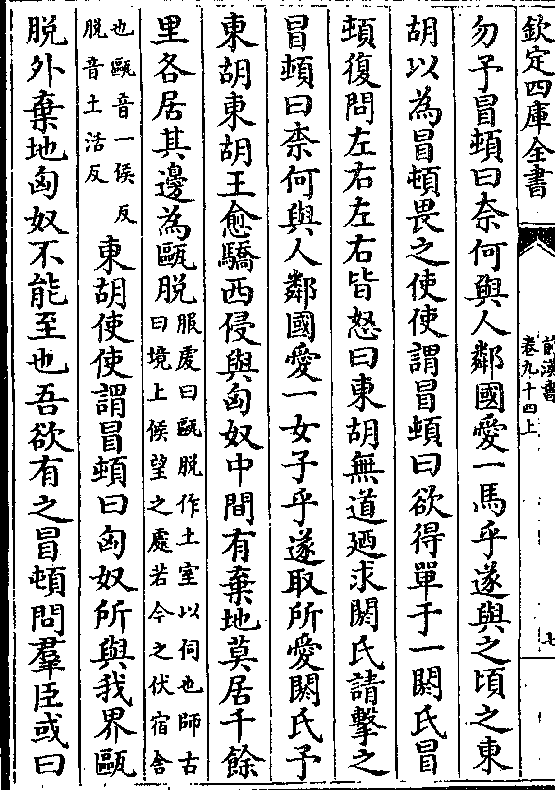 欽定四庫全書
前漢書
卷九十四上
七
勿予冒頓曰柰何與人鄰國愛一馬乎遂與之頃之東
胡以為冒頓畏之使使謂冒頓曰欲得單于一閼氏冒
頓復問左右左右皆怒曰東胡無道廼求閼氏請擊之
冒頓曰柰何與人鄰國愛一女子乎遂取所愛閼氏予
東胡東胡王愈驕西侵與匈奴中間有棄地莫居千餘
里各居其邊為甌脱
服虔曰甌脱作土室以伺也師古
曰境上候望之處若今之伏宿舍
也甌音一侯反
脱音土活反
東胡使使謂冒頓曰匈奴所與我界甌
脱外棄地匈奴不能至也吾欲有之冒頓問羣臣或曰